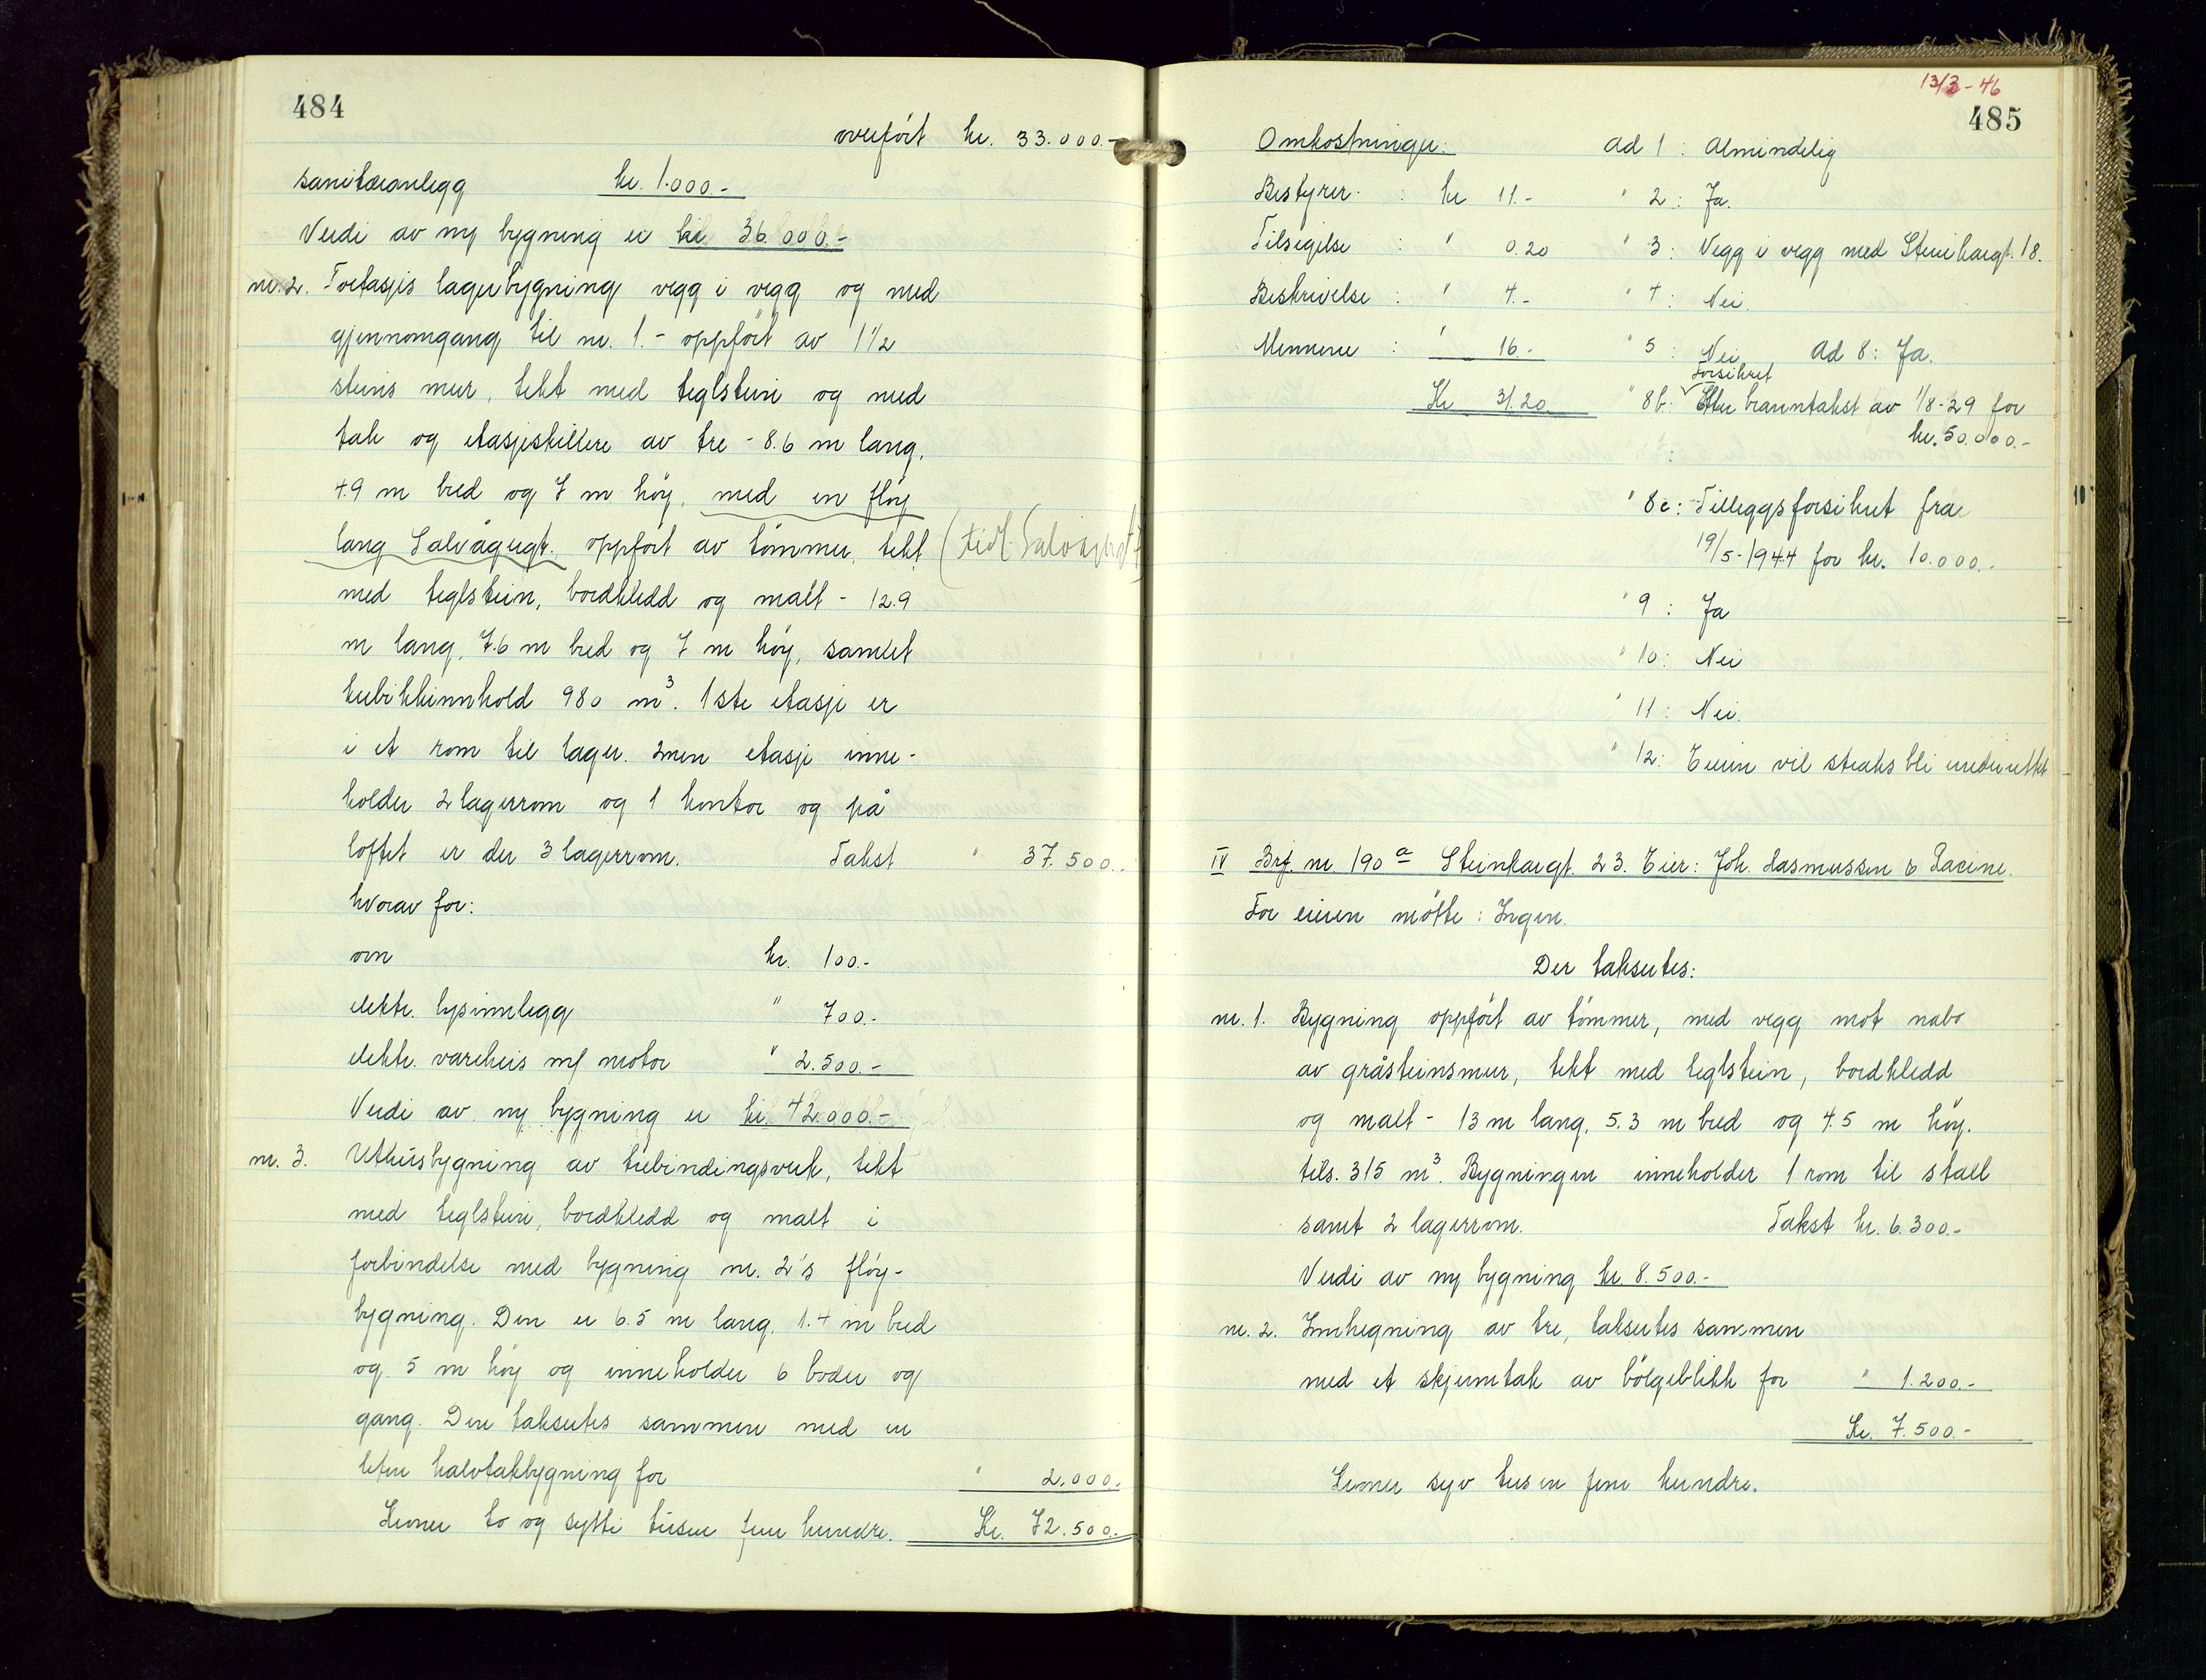 484
overført kr. 33.000.-
sanitæranlegg kr. 1.000.-
Verdi av ny bygning er kr. 36.000.-
nr. 2. Toetasjes lagerbygning vegg i vegg og med
gjennomgang til nr. 1. - oppført av 1 1/2
steins mur, tekt med teglstein og med
tak og etasjeskillere av tre - 8.6 m lang,
4.9 m bred og 7 m høy, med en fløy
lang Salvågergt. oppført av tømmer, tekt (tidl.
med teglstein, bordkledd og malt - 12.9
m lang, 7.6 m bred og 7 m høy, samlet
kubikkinnhold 980 m³. 1ste etasje er
i et rom til lager. 2nen etasje inne-
holder 2 lagerrom og 1 kontor og på
loftet er der 3 lagerrom. Takst " 37.500.-
hvorav for:
ovn kr. 100.-
elektr. lysinnlegg " 700.-
elektr. vareheis m/ motor " 2.500.-
Verdi av ny bygning er kr. 42.000.-
nr. 3. Uthusbygning av trebindingsverk, tekt
med teglstein, bordkledd og malt i
forbindelse med bygning nr. 2's fløy-
bygning. Den er 6.5 m lang, 1.4 m bred
og 5 m høy og inneholder 6 boder og
gang. Den takseres sammen med en
liten halvtakbygning for " 2.000.-
Kroner to og sytti tusen fem hundre. Kr. 72.500.-
13/3-46
485
Omkostninger: Ad 1: Almindelig
Bestyrer : kr 11.- " 2: Ja.
Tilsigelse : " 0.20 " 3: Vegg i vegg med Steinkargt. 18.
Beskrivelse : " 4.- " 4: Nei.
Mennene : " 16.- " 5: Nei Ad 8: Ja.
Forsikret
Kr 31.20 " 8b: Etter branntakst av 1/8-29 for
kr. 50.000.-
" 8c: Tilleggsforsikret fra
19/5-1944 for kr. 10.000.-
" 9: Ja
" 10: Nei
" 11: Nei.
" 12: Eieren vil straks bli underrettet
IV Brf. nr. 190 a Steinkargt. 23. Eier: Joh. Rasmussen & Racine.
For eieren møtte: Ingen.
Der takseres:
nr. 1. Bygning oppført av tømmer, med vegg mot nabo
av gråsteinsmur, tekt med teglstein, bordkledd
og malt - 13 m lang, 5.3 m bred og 4.5 m høy.
tils. 315 m³. Bygningen inneholder 1 rom til stall
samt 2 lagerrom. Takst kr. 6.300.-
Verdi av ny bygning kr. 8.500.-
nr. 2. Innhegning av tre, takseres sammen
med et skjermtak av bølgeblikk for " 1.200.-
Kr. 7.500.-
Kroner syv tusen fem hundre.